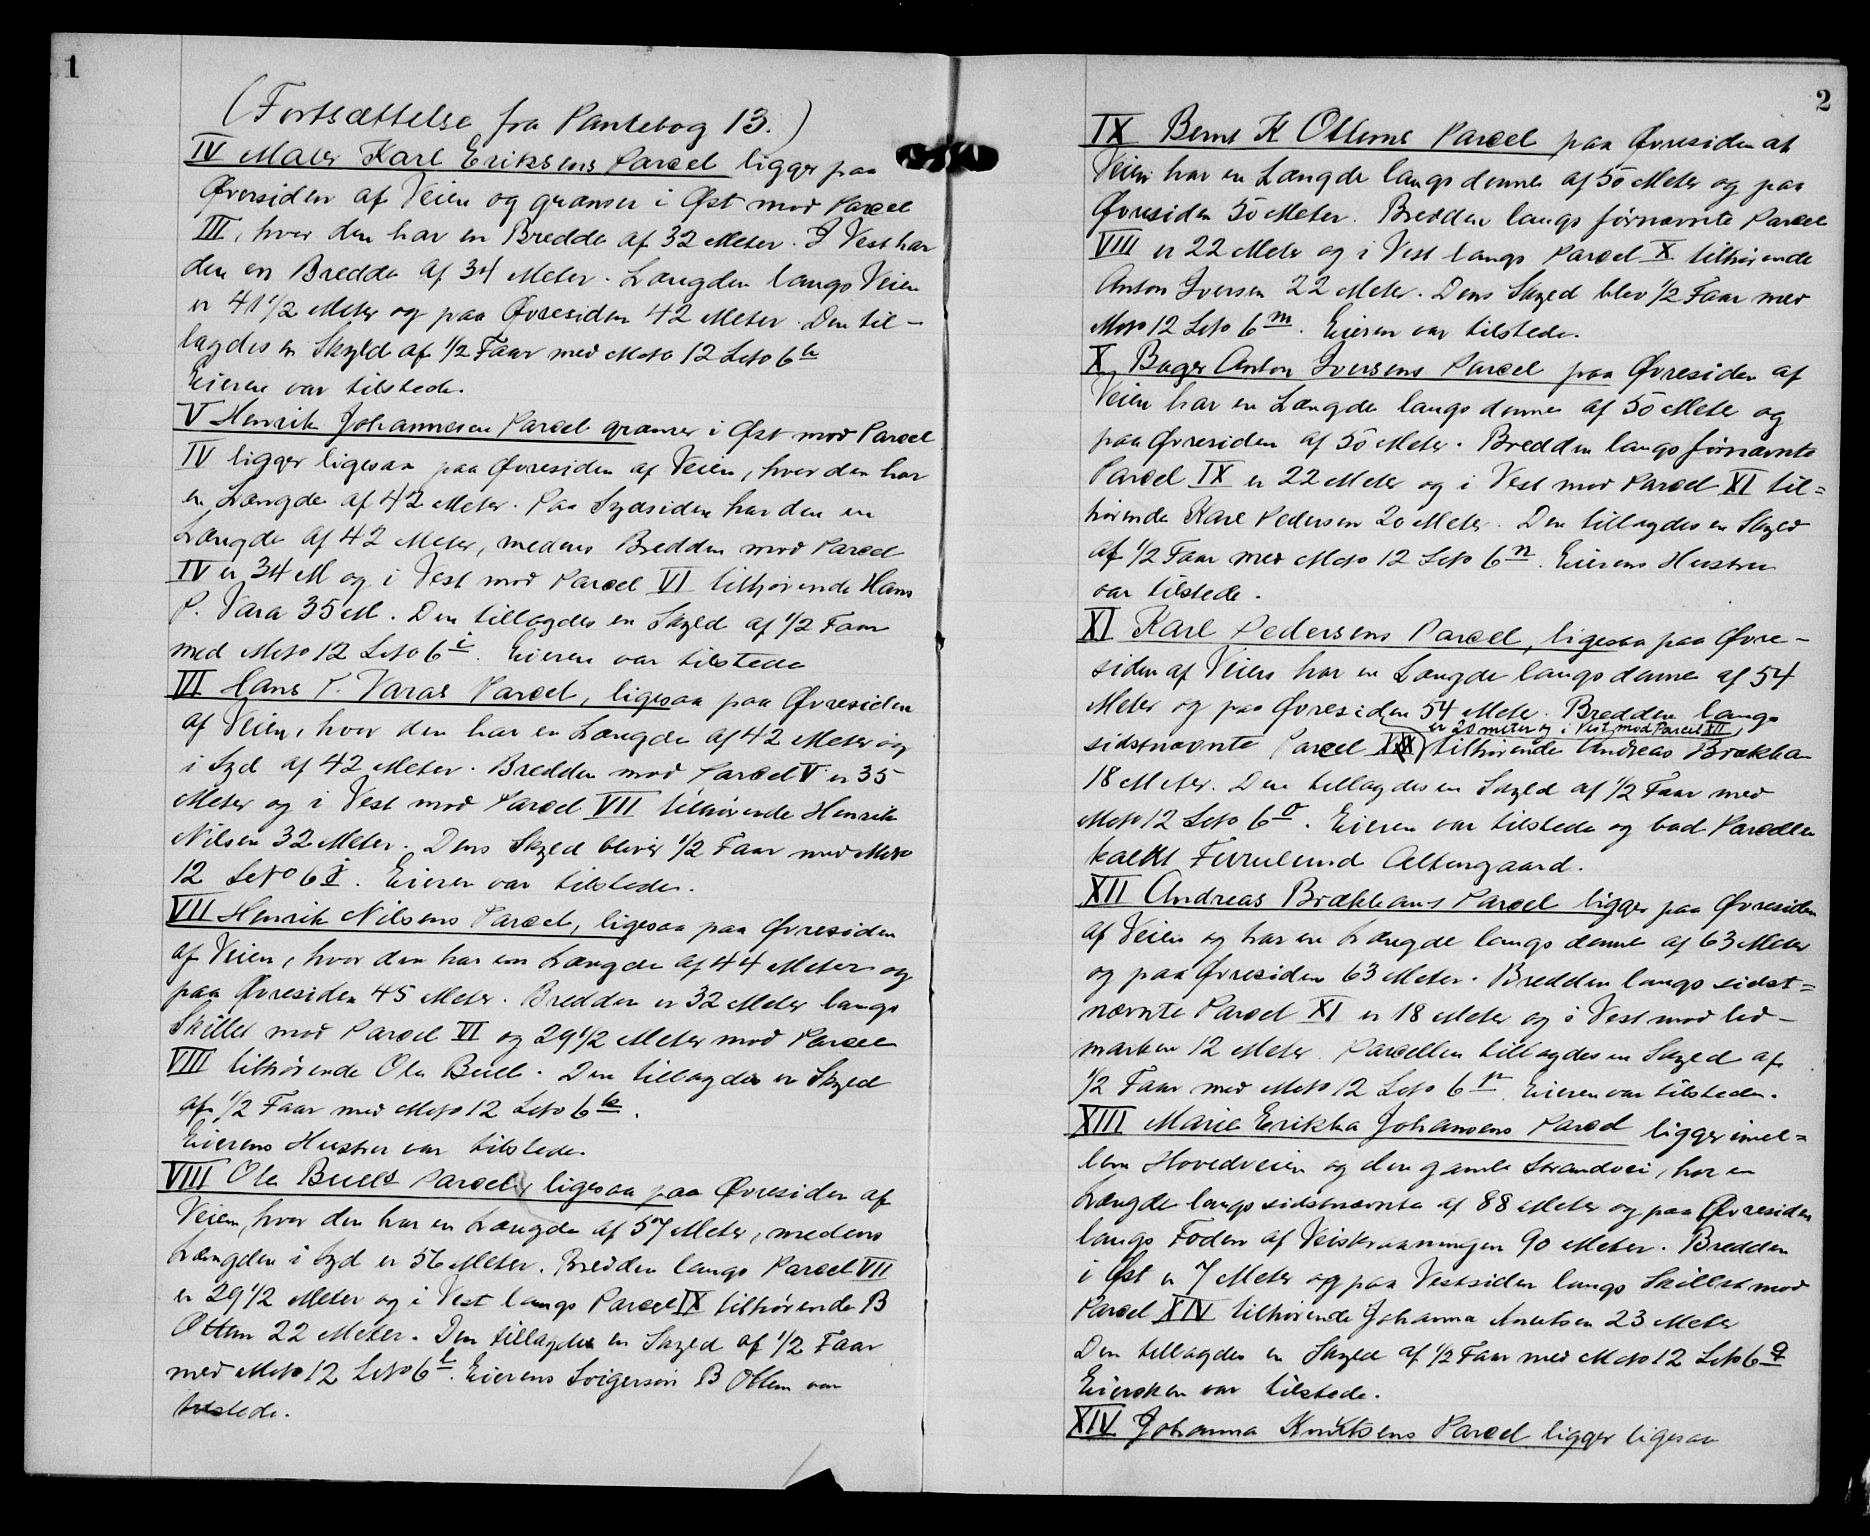 1
(Fortsættelse fra Pantebog 13.)
IV Maler Karl Eriksens Parcel ligger paa
Øvresiden af Veien og grænser i Øst mod Parcel
III, hvor den har en Bredde af 32 Meter. I Vest har
den en Bredde af 34 Meter. Længden langs Veien
er 41 1/2 Meter og paa Øvresiden 42 Meter. Den til-
lagdes en Skyld af 1/2 Faar med Mno 12 Lno 6 h
Eieren var tilstede.
V Henrik Johannesen Parcel grænser i Øst mod Parcel
IV ligger ligesaa paa Øvresiden af Veien, hvor den har
en Længde af 42 Meter. Paa Sydsiden har den en
Længde af 42 Meter, medens Bredden mod Parcel
IV er 34 M og i Vest mod Parcel VI tilhørende Hans
P. Vara 35 M. Den tillagdes en Skyld af 1/2 Faar
med Mno 12 Lno 6 i. Eieren var tilstede
VI Hans P. Varas Parcel, ligesaa paa Øvresiden
af Veien, hvor den har en Længde af 42 Meter og
i Syd af 42 Meter. Bredden mod Parcel V er 35
Meter og i Vest mod Parcel VII tilhørende Henrik
Nilsen 32 Meter. Dens Skyld bliver 1/2 Faar med Mno
12 Lno 6 j. Eieren var tilstede.
VII Henrik Nilsens Parcel, ligesaa paa Øvresiden
af Veien, hvor den har en Længde af 44 Meter og
paa Øvresiden 45 Meter. Bredden er 32 Meter langs
Skillet mod Parcel VI og 29 1/2 Meter mod Parcel
VIII tilhørende Ole Buell. Den tillagdes en Skyld
af 1/2 Faar med Mno 12 Lno 6 k.
Eierens Hustru var tilstede.
VIII Ole Buells Parcel, ligesaa paa Øvresiden af
Veien, hvor den har en Længde af 57 Meter, medens
Længden i Syd er 56 Meter. Bredden langs Parcel VII
er 29 1/2 Meter og i Vest langs Parcel IX tilhørende B
Ottem 22 Meter. Den tillagdes en Skyld af 1/2 Faar
med Mno 12 Lno 6 l. Eierens Svigersøn B Ottem var
tilstede.
2
IX Bernt K Ottems Parcel paa Øvresiden af
Veien har en Længde langs denne af 50 Meter og paa
Øvresiden 50 Meter. Bredden langs førnævnte Parcel
VIII er 22 Meter og i Vest langs Parcel X tilhørende
Anton Iversen 22 Meter. Dens Skyld blev 1/2 Faar med
Mno 12 Lno 6 m. Eieren var tilstede.
X Bager Anton Iversens Parcel paa Øvresiden af
Veien har en Længde langs denne af 50 Meter og
paa Øvresiden af 50 Meter. Bredden langs førnævnte
Parcel IX er 22 Meter og i Vest mod Parcel XI til=
hørende Karl Pedersen 20 Meter. Den tillagdes en Skyld
af 1/2 Faar med Mno 12 Lno 6 n. Eierens Hustru
var tilstede.
XI Karl Pedersens Parcel, ligesaa paa Øvre-
siden af Veien har en Længde langs denne af 54
Meter og paa Øvresiden 54 Meter. Bredden langs
er 20 meter og i Vest mod Parcel XII,
sidstnævnte Parcel tilhørende Andreas Brækhan
18 Meter. Den tillagdes en Skyld af 1/2 Faar med
Mno 12 Lno 6 o. Eieren var tilstede og bad Parcellen
kaldt Furulund Altengaard.
XII Andreas Brækhans Parcel ligger paa Øvresiden
af Veien og har en Længde langs denne af 63 Meter
og paa Øvresiden 63 Meter. Bredden langs sidst=
nævnte Parcel XI er 18 Meter og i Vest mod Ud-
marken 12 Meter. Parcellen tillagdes en Skyld af
1/2 Faar med Mno 12 Lno 6 p. Eieren var tilstede.
XIII Marie Erikka Johansens Parcel ligger imel=
lem Hovedveien og den gamle Strandvei, har en
Længde langs sidstnævnte af 88 Meter og paa Øvresiden
langs Foden af Veiskraaningen 90 Meter. Bredden
i Øst er 7 Meter og paa Vestsiden langs Skillet mod
Parcel XIV tilhørende Johanna Knutsen 23 Meter
Den tillagdes en Skyld af 1/2 Faar med Mno 12 Lno 6 q
Eiersken var tilstede.
XIV Johanna Knutsens Parcel ligger ligesaa